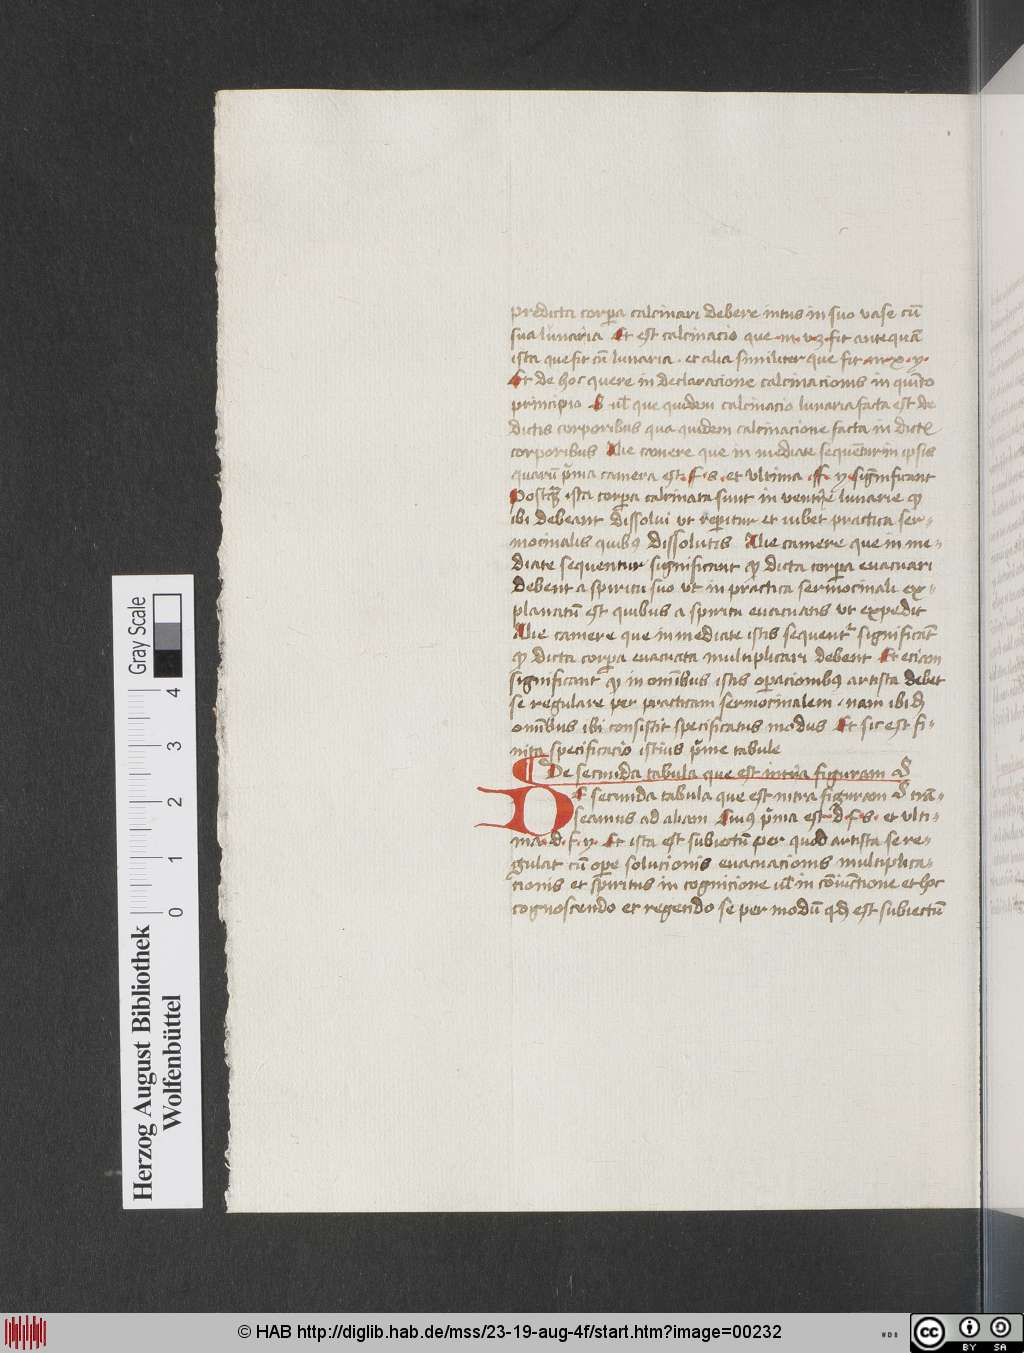 predicta corꝑa calcinari debere intus in suo vase cū
sua lunaria Et est calcinacio que ·m· vꝫ· fit anteqꝫā
ista que fit cū lunaria · et alia similiter que fit
Et de hoc quere in declaracione calcinacionis in quīto
principio que quidem calcinacio lunaria facta est de
dictis corporibus qua quidem calcinacione facta in
corporibus Alie camere que in mediate sequētur in ipsis
quarū p̄ma camera est · f · s · et vltima · ff · y · significant
ista corꝑa calcinata sunt in ventre lunarie ꝙ
ibi debeant dissolui vt reperitur et iubet practica ser-
mocinalis quibꝰ dissolutis Alie camere que in me-
diate sequentur significant ꝙ dicta corꝑa euacuari
debent a spiritu suo vt in practica sermocinali ex-
planatū est quibus a spiritu euacuatis vt expedit
Alie camere que in mediate istis sequent᷑ significāt
ꝙ dicta corꝑa euacuata multiplicari debent Et eciam
significant ꝙ in omībus istis oꝑacionibꝰ artista debet
se regulare per practicam sermocinalem · nam ibidē
omībus ibi consistit specificatus modus Et sic est fi-
nita specificacio istius p̄me tabule
¶ De secunda tabula que est intra figuram
De secunda tabula que est intra figuram trā-
seamus ad aliam Cuius p̄ma est · d · f · s · et vlti-
ma · d · f · y · Et ista est subiectū per quod artista se re-
gulat cū oꝑe solucionis euacuacionis multiplica-
cionis et spiritus in cognicione ul̄ in cōiūctione et hoc
cognoscendo et regendo se per modū qđ est subiectū
Herzog August Bibliothek
Wolfenbüttel
0 1 2 3 4
Gray Scale
© HAB http://diglib.hab.de/mss/23-19-aug-4f/start.htm?image=00232
WDB
cc
BY SA